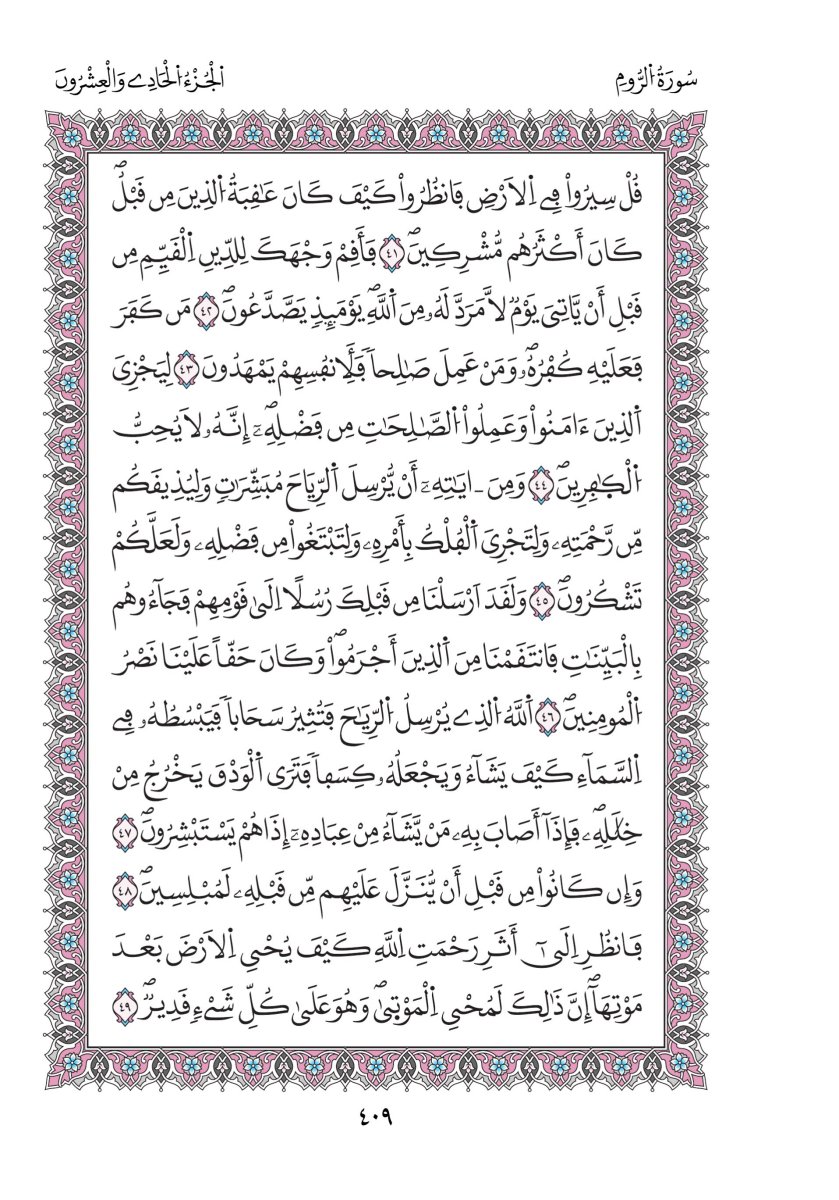 سُورَةُ اُ۬لرُّومِ
اُ۬لْجُزْءُ اُ۬لْحَادِے وَالْعِشْرُونَ
قُلْ سِيرُواْ فِے اِ۬لَارْضِ فَانظُرُواْ كَيْفَ كَانَ عَٰقِبَةُ اُ۬لذِينَ مِن قَبْلُۖ
كَانَ أَكْثَرُهُم مُّشْرِكِينَۖ ٤١ فَأَقِمْ وَجْهَكَ لِلدِّينِ اِ۬لْقَيِّمِ مِن
قَبْلِ أَنْ يَّاتِيَ يَوْمٌ لَّا مَرَدَّ لَهُۥ مِنَ اَ۬للَّهِۖ يَوْمَئِذٖ يَصَّدَّعُونَۖ ٤٢ مَن كَفَرَ
فَعَلَيْهِ كُفْرُهُۥۖ وَمَنْ عَمِلَ صَٰلِحاٗ فَلَأَنفُسِهِمْ يَمْهَدُونَ ٤٣ لِيَجْزِيَ
اَ۬لذِينَ ءَامَنُواْ وَعَمِلُواْ اُ۬لصَّٰلِحَٰتِ مِن فَضْلِهِۦٓۖ إِنَّهُۥ لَا يُحِبُّ
اُ۬لْكٰ۪فِرِينَۖ ٤٤ وَمِنَ ـ ايَٰتِهِۦٓ أَنْ يُّرْسِلَ اَ۬لرِّيَاحَ مُبَشِّرَٰتٖ وَلِيُذِيقَكُم
مِّن رَّحْمَتِهِۦ وَلِتَجْرِيَ اَ۬لْفُلْكُ بِأَمْرِهِۦ وَلِتَبْتَغُواْ مِن فَضْلِهِۦ وَلَعَلَّكُمْ
تَشْكُرُونَۖ ٤٥ وَلَقَدَ اَرْسَلْنَا مِن قَبْلِكَ رُسُلًا اِلَىٰ قَوْمِهِمْ فَجَآءُوهُم
بِالْبَيِّنَٰتِ فَانتَقَمْنَا مِنَ اَ۬لذِينَ أَجْرَمُواْۖ وَكَانَ حَقّاً عَلَيْنَا نَصْرُ
اُ۬لْمُومِنِينَۖ ٤٦ اَ۬للَّهُ اُ۬لذِے يُرْسِلُ اُ۬لرِّيَٰحَ فَتُثِيرُ سَحَاباٗ فَيَبْسُطُهُۥ فِے
اِ۬لسَّمَآءِ كَيْفَ يَشَآءُ وَيَجْعَلُهُۥ كِسَفاٗ فَتَرَى اَ۬لْوَدْقَ يَخْرُجُ مِنْ
خِلَٰلِهِۦۖ فَإِذَآ أَصَابَ بِهِۦ مَنْ يَّشَآءُ مِنْ عِبَادِهِۦٓ إِذَا هُمْ يَسْتَبْشِرُونَۖ ٤٧
وَإِن كَانُواْ مِن قَبْلِ أَنْ يُّنَزَّلَ عَلَيْهِم مِّن قَبْلِهِۦ لَمُبْلِسِينَۖ ٤٨
فَانظُرِ اِلَىٰٓ أَثَرِ رَحْمَتِ اِ۬للَّهِ كَيْفَ يُحْيِ اِ۬لَارْضَ بَعْدَ
مَوْتِهَآۖ إِنَّ ذَٰلِكَ لَمُحْيِ اِ۬لْمَوْت۪ىٰۖ وَهُوَ عَلَىٰ كُلِّ شَےْءٖ قَدِيرٌۖ ٤٩
٤٠٩